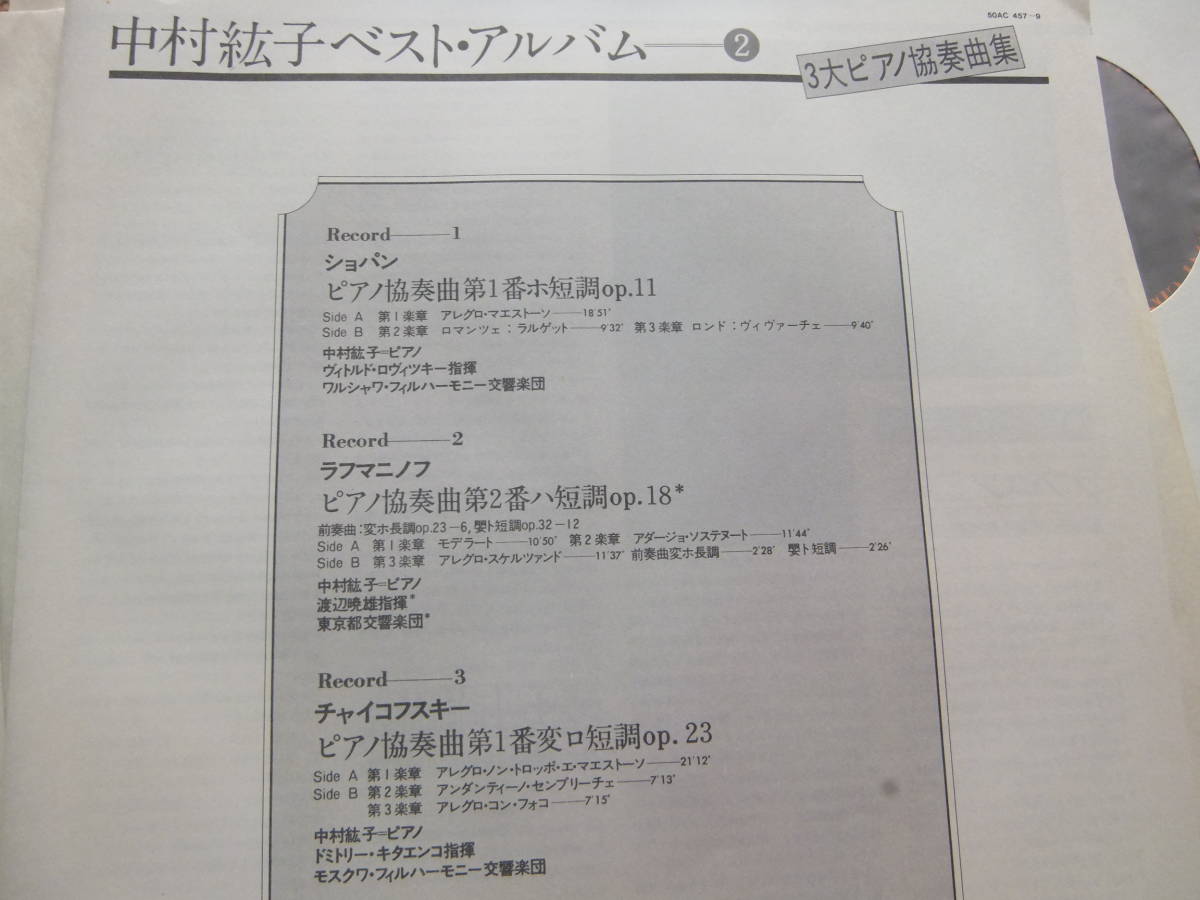 50AC 457-9
中村紘子ベスト・アルバム——❷
3大ピアノ協奏曲集
Record——1
ショパン
ピアノ協奏曲第1番ホ短調op.11
Side A 第1楽章 アレグロ・マエストーソ——18'51"
Side B 第2楽章 ロマンツェ：ラルゲット——9'32" 第3楽章 ロンド：ヴィヴァーチェ——9'40"
中村紘子=ピアノ
ヴィトルド・ロヴィツキー指揮
ワルシャワ・フィルハーモニー交響楽団
Record——2
ラフマニノフ
ピアノ協奏曲第2番ハ短調op.18*
前奏曲：変ホ長調op.23-6, 嬰ト短調op.32-12
Side A 第1楽章 モデラート——10'50" 第2楽章 アダージョ・ソステヌート——11'44"
Side B 第3楽章 アレグロ・スケルツァンド——11'37" 前奏曲変ホ長調——2'28" 嬰ト短調——2'26"
中村紘子=ピアノ
渡辺暁雄指揮*
東京都交響楽団*
Record——3
チャイコフスキー
ピアノ協奏曲第1番変ロ短調op.23
Side A 第1楽章 アレグロ・ノン・トロッポ・エ・マエストーソ——21'12"
Side B 第2楽章 アンダンティーノ・センプリーチェ——7'13"
第3楽章 アレグロ・コン・フォコ——7'15"
中村紘子=ピアノ
ドミトリー・キタエンコ指揮
モスクワ・フィルハーモニー交響楽団